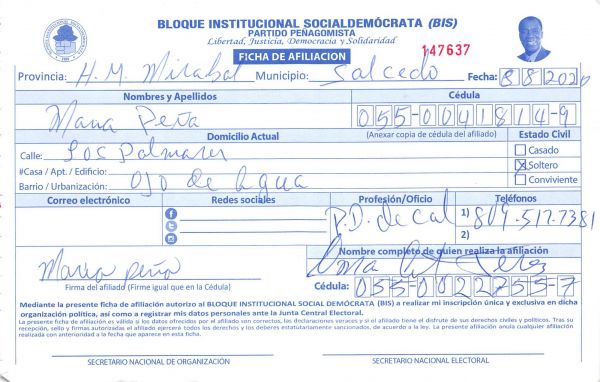 BLOQUE INSTITUCIONAL SOCIALDEMÓCRATA (BIS)
PARTIDO PEÑAGOMISTA
Libertad, Justicia, Democracia y Solidaridad
FICHA DE AFILIACION
147637
Provincia: H. M. Mirabal Municipio: Salcedo Fecha: 8 8 2020
Nombres y Apellidos Cédula
Maria Peña 055-0041814-9
Domicilio Actual (Anexar copia de cédula del afiliado) Estado Civil
Calle: Los Palmares Casado
#Casa / Apt. / Edificio: X Soltero
Barrio / Urbanización: Ojo de Agua Conviviente
Correo electrónico Redes sociales Profesión/Oficio Teléfonos
P.D. de cal 1) 809-517-7381
2)
Nombre completo de quien realiza la afiliación
Maria Peña
Firma del afiliado (Firme igual que en la Cédula) Cédula: 055-0022755-7
Mediante la presente ficha de afiliación autorizo al BLOQUE INSTITUCIONAL SOCIAL DEMÓCRATA (BIS) a realizar mi inscripción única y exclusiva en dicha
organización política, así como a registrar mis datos personales ante la Junta Central Electoral.
La presente ficha de afiliación es valida si los datos ofrecidos por el afiliado son correctos, las declaraciones voraces y si el afiliado tiene el disfrute de sus derechos civiles y políticos. Tras su
recepción, sello y firmas autorizadas el afiliado ejercerá todos los derechos y los deberes estatutariamente sancionados, de acuerdo a la ley. La presente afiliación anula cualquier afiliación
realizada con anterioridad a la fecha que aparece en esta ficha.
SECRETARIO NACIONAL DE ORGANIZACIÓN SECRETARIO NACIONAL ELECTORAL